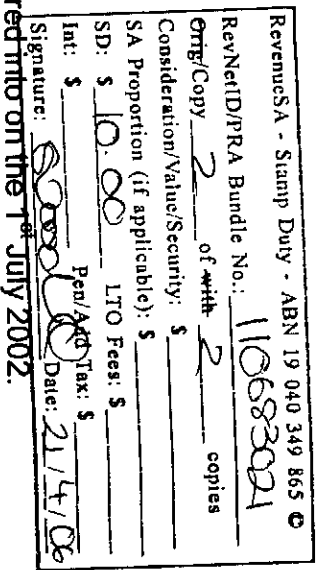 RevenueSA - Stamp Duty - ABN 19 040 349 865 ©
RevNetID/PRA Bundle No.: 110683021
Orig/Copy 2 of with 2 copies
Consideration/Value/Security: $
SA Proportion (if applicable): $
SD: $ 10.00 LTO Fees: $
Int: $ Pen/Add Tax: $
Signature: Date: 21/4/06
red into on the 1st July 2002.